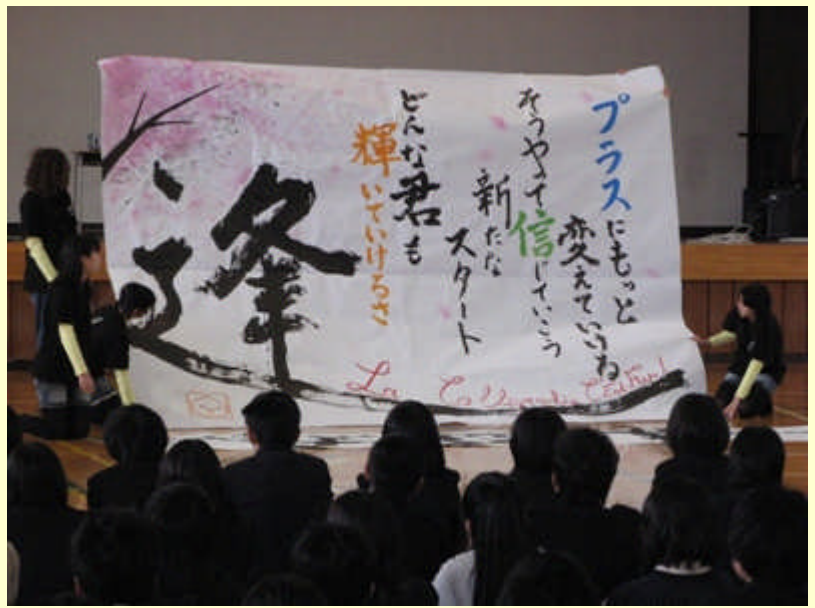 プラスにもっと
変えていける
そうやって信じていこう
新たな
スタート
どんな君も
輝いていけるさ
逢
La